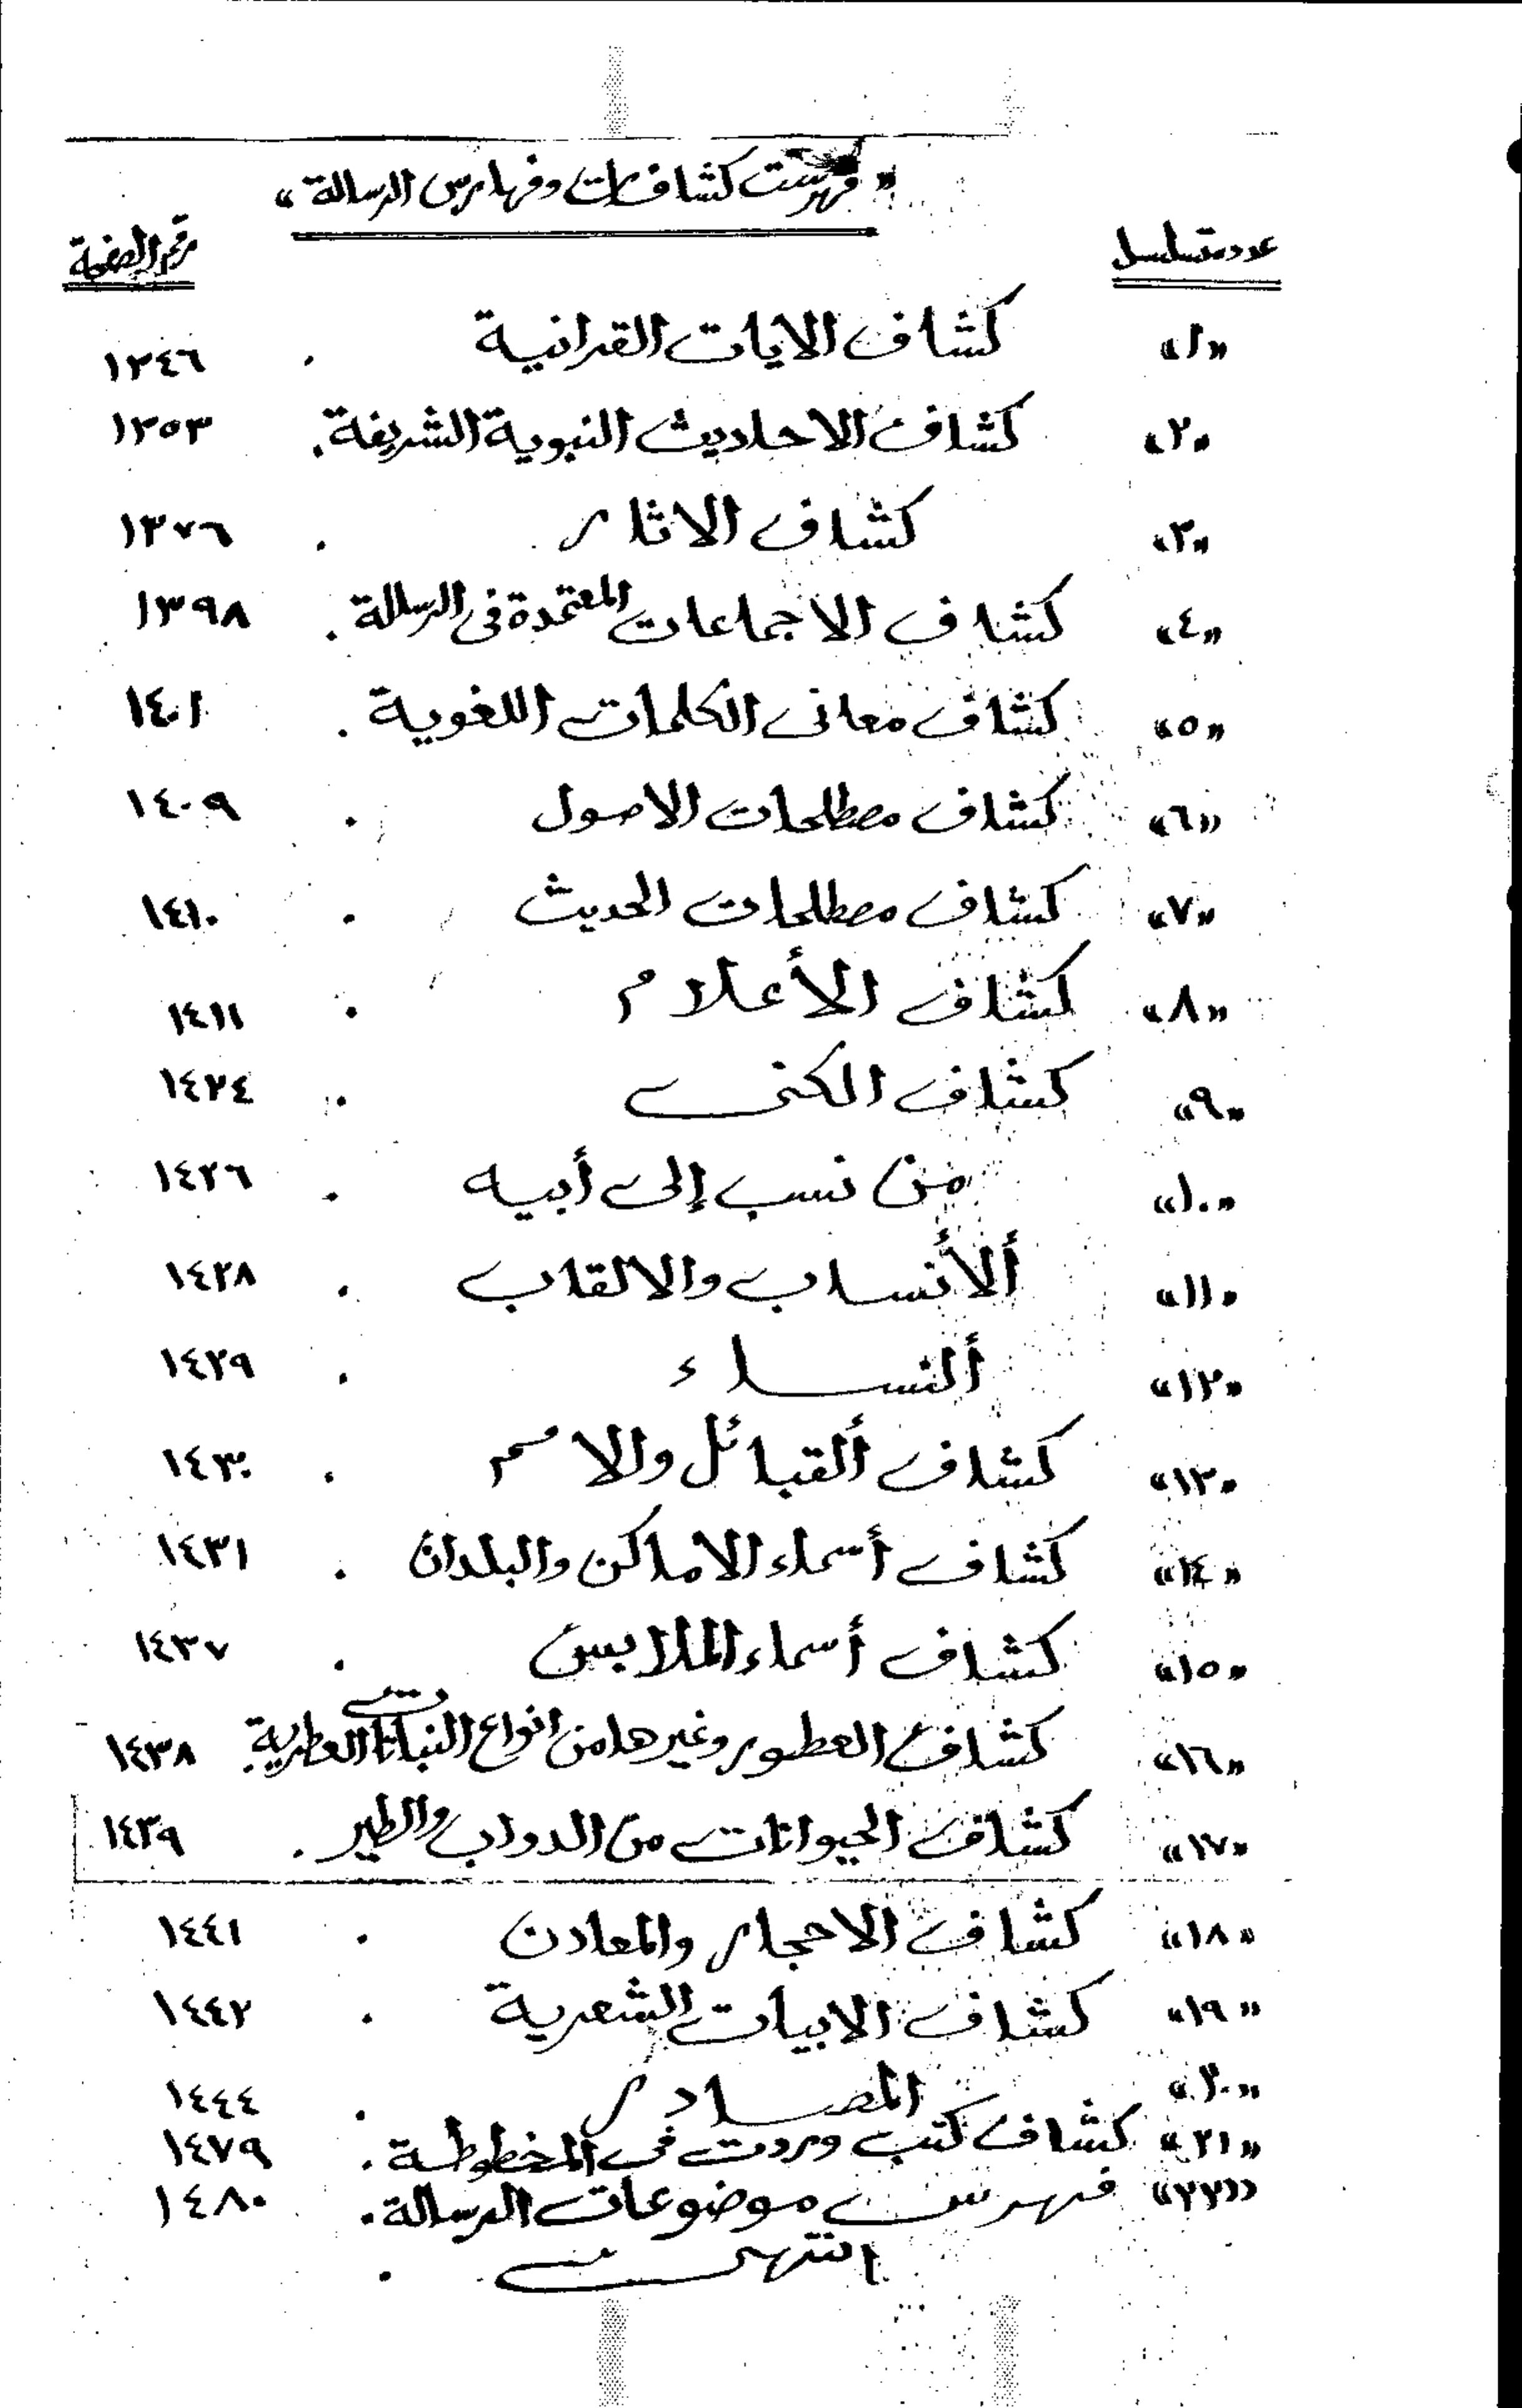 « فهرست كشافات وفهارس الرسالة »
عدد متسلسل رقم الصفحة
«١» كشاف الايات القرانية . ١٣٤٦
«٢» كشاف الاحاديث النبوية الشريفة . ١٣٥٣
«٣» كشاف الاثار . ١٣٧٦
«٤» كشاف الاجماعات المعتمدة فى الرسالة . ١٣٩٨
«٥» كشاف معانى الكلمات اللغوية . ١٤٠١
«٦» كشاف مصطلحات الاصول . ١٤٠٩
«٧» كشاف مصطلحات الحديث . ١٤١٠
«٨» كشاف الأعلام . ١٤١١
«٩» كشاف الكنى . ١٤٢٤
«١٠» من نسب إلى أبيه . ١٤٢٦
«١١» ألأنساب والالقاب . ١٤٢٨
«١٢» ألنساء . ١٤٢٩
«١٣» كشاف ألقبائل والامم . ١٤٣٠
«١٤» كشاف أسماء الاماكن والبلدان . ١٤٣١
«١٥» كشاف أسماء الملابس . ١٤٣٧
«١٦» كشاف العطور وغيرها من انواع النباتات العطرية . ١٤٣٨
«١٧» كشاف الحيوانات من الدواب والطير . ١٤٣٩
«١٨» كشاف الاحجار والمعادن . ١٤٤١
«١٩» كشاف الابيات الشعرية . ١٤٤٢
«٢٠» المصادر . ١٤٤٤
«٢١» كشاف كتب وردت فى المخطوطة . ١٤٧٩
«٢٢» فهرس موضوعات الرسالة . ١٤٨٠
انتهى .